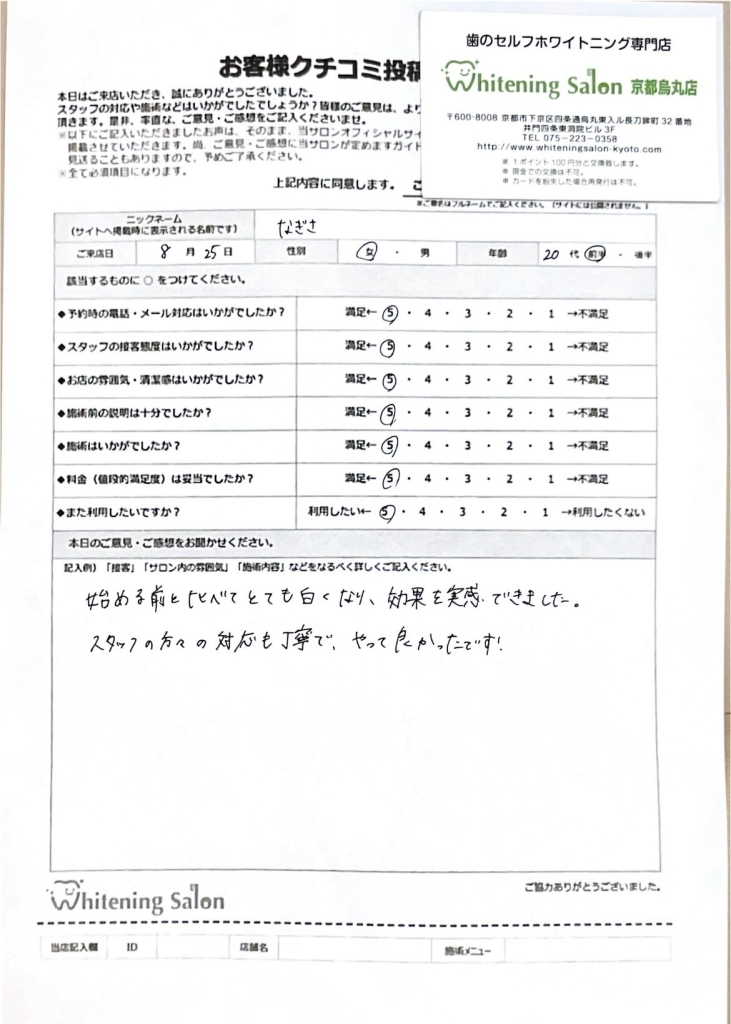 お客様クチコミ投稿
歯のセルフホワイトニング専門店
Whitening Salon 京都烏丸店
〒600-8008 京都市下京区四条通烏丸東入ル長刀鉾町 32 番地
井門四条東洞院ビル 3F
TEL 075-223-0358
http://www.whiteningsalon-kyoto.com
※ 1ポイント100円分と交換致します。
※ 現金での交換は不可。
※ カードを紛失した場合再発行は不可。
本日はご来店いただき、誠にありがとうございました。
スタッフの対応や施術などはいかがでしたでしょうか？皆様のご意見は、より
頂きます。是非、率直な、ご意見・ご感想をご記入くださいませ。
※以下にご記入いただきましたお声は、そのまま、当サロンオフィシャルサイ
掲載させていただきます。尚、ご意見・ご感想に当サロンが定めますガイド
見送ることもありますので、予めご了承ください。
※全て必須項目になります。
上記内容に同意します。
※ご署名はフルネームでご記入ください。（サイトには公開されません。）
ニックネーム
（サイトへ掲載時に表示される名前です） なぎさ
ご来店日 8 月 25 日 性別 女 ・ 男 年齢 20 代 前半 ・ 後半
該当するものに ○ をつけてください。
◆予約時の電話・メール対応はいかがでしたか？ 満足← 5 ・ 4 ・ 3 ・ 2 ・ 1 →不満足
◆スタッフの接客態度はいかがでしたか？ 満足← 5 ・ 4 ・ 3 ・ 2 ・ 1 →不満足
◆お店の雰囲気・清潔感はいかがでしたか？ 満足← 5 ・ 4 ・ 3 ・ 2 ・ 1 →不満足
◆施術前の説明は十分でしたか？ 満足← 5 ・ 4 ・ 3 ・ 2 ・ 1 →不満足
◆施術はいかがでしたか？ 満足← 5 ・ 4 ・ 3 ・ 2 ・ 1 →不満足
◆料金（値段的満足度）は妥当でしたか？ 満足← 5 ・ 4 ・ 3 ・ 2 ・ 1 →不満足
◆また利用したいですか？ 利用したい← 5 ・ 4 ・ 3 ・ 2 ・ 1 →利用したくない
本日のご意見・ご感想をお聞かせください。
記入例）「接客」「サロン内の雰囲気」「施術内容」などをなるべく詳しくご記入ください。
始める前と比べてとても白くなり、効果を実感できました。
スタッフの方々の対応も丁寧で、やって良かったです！
Whitening Salon
ご協力ありがとうございました。
当店記入欄 ID 店舗名 施術メニュー